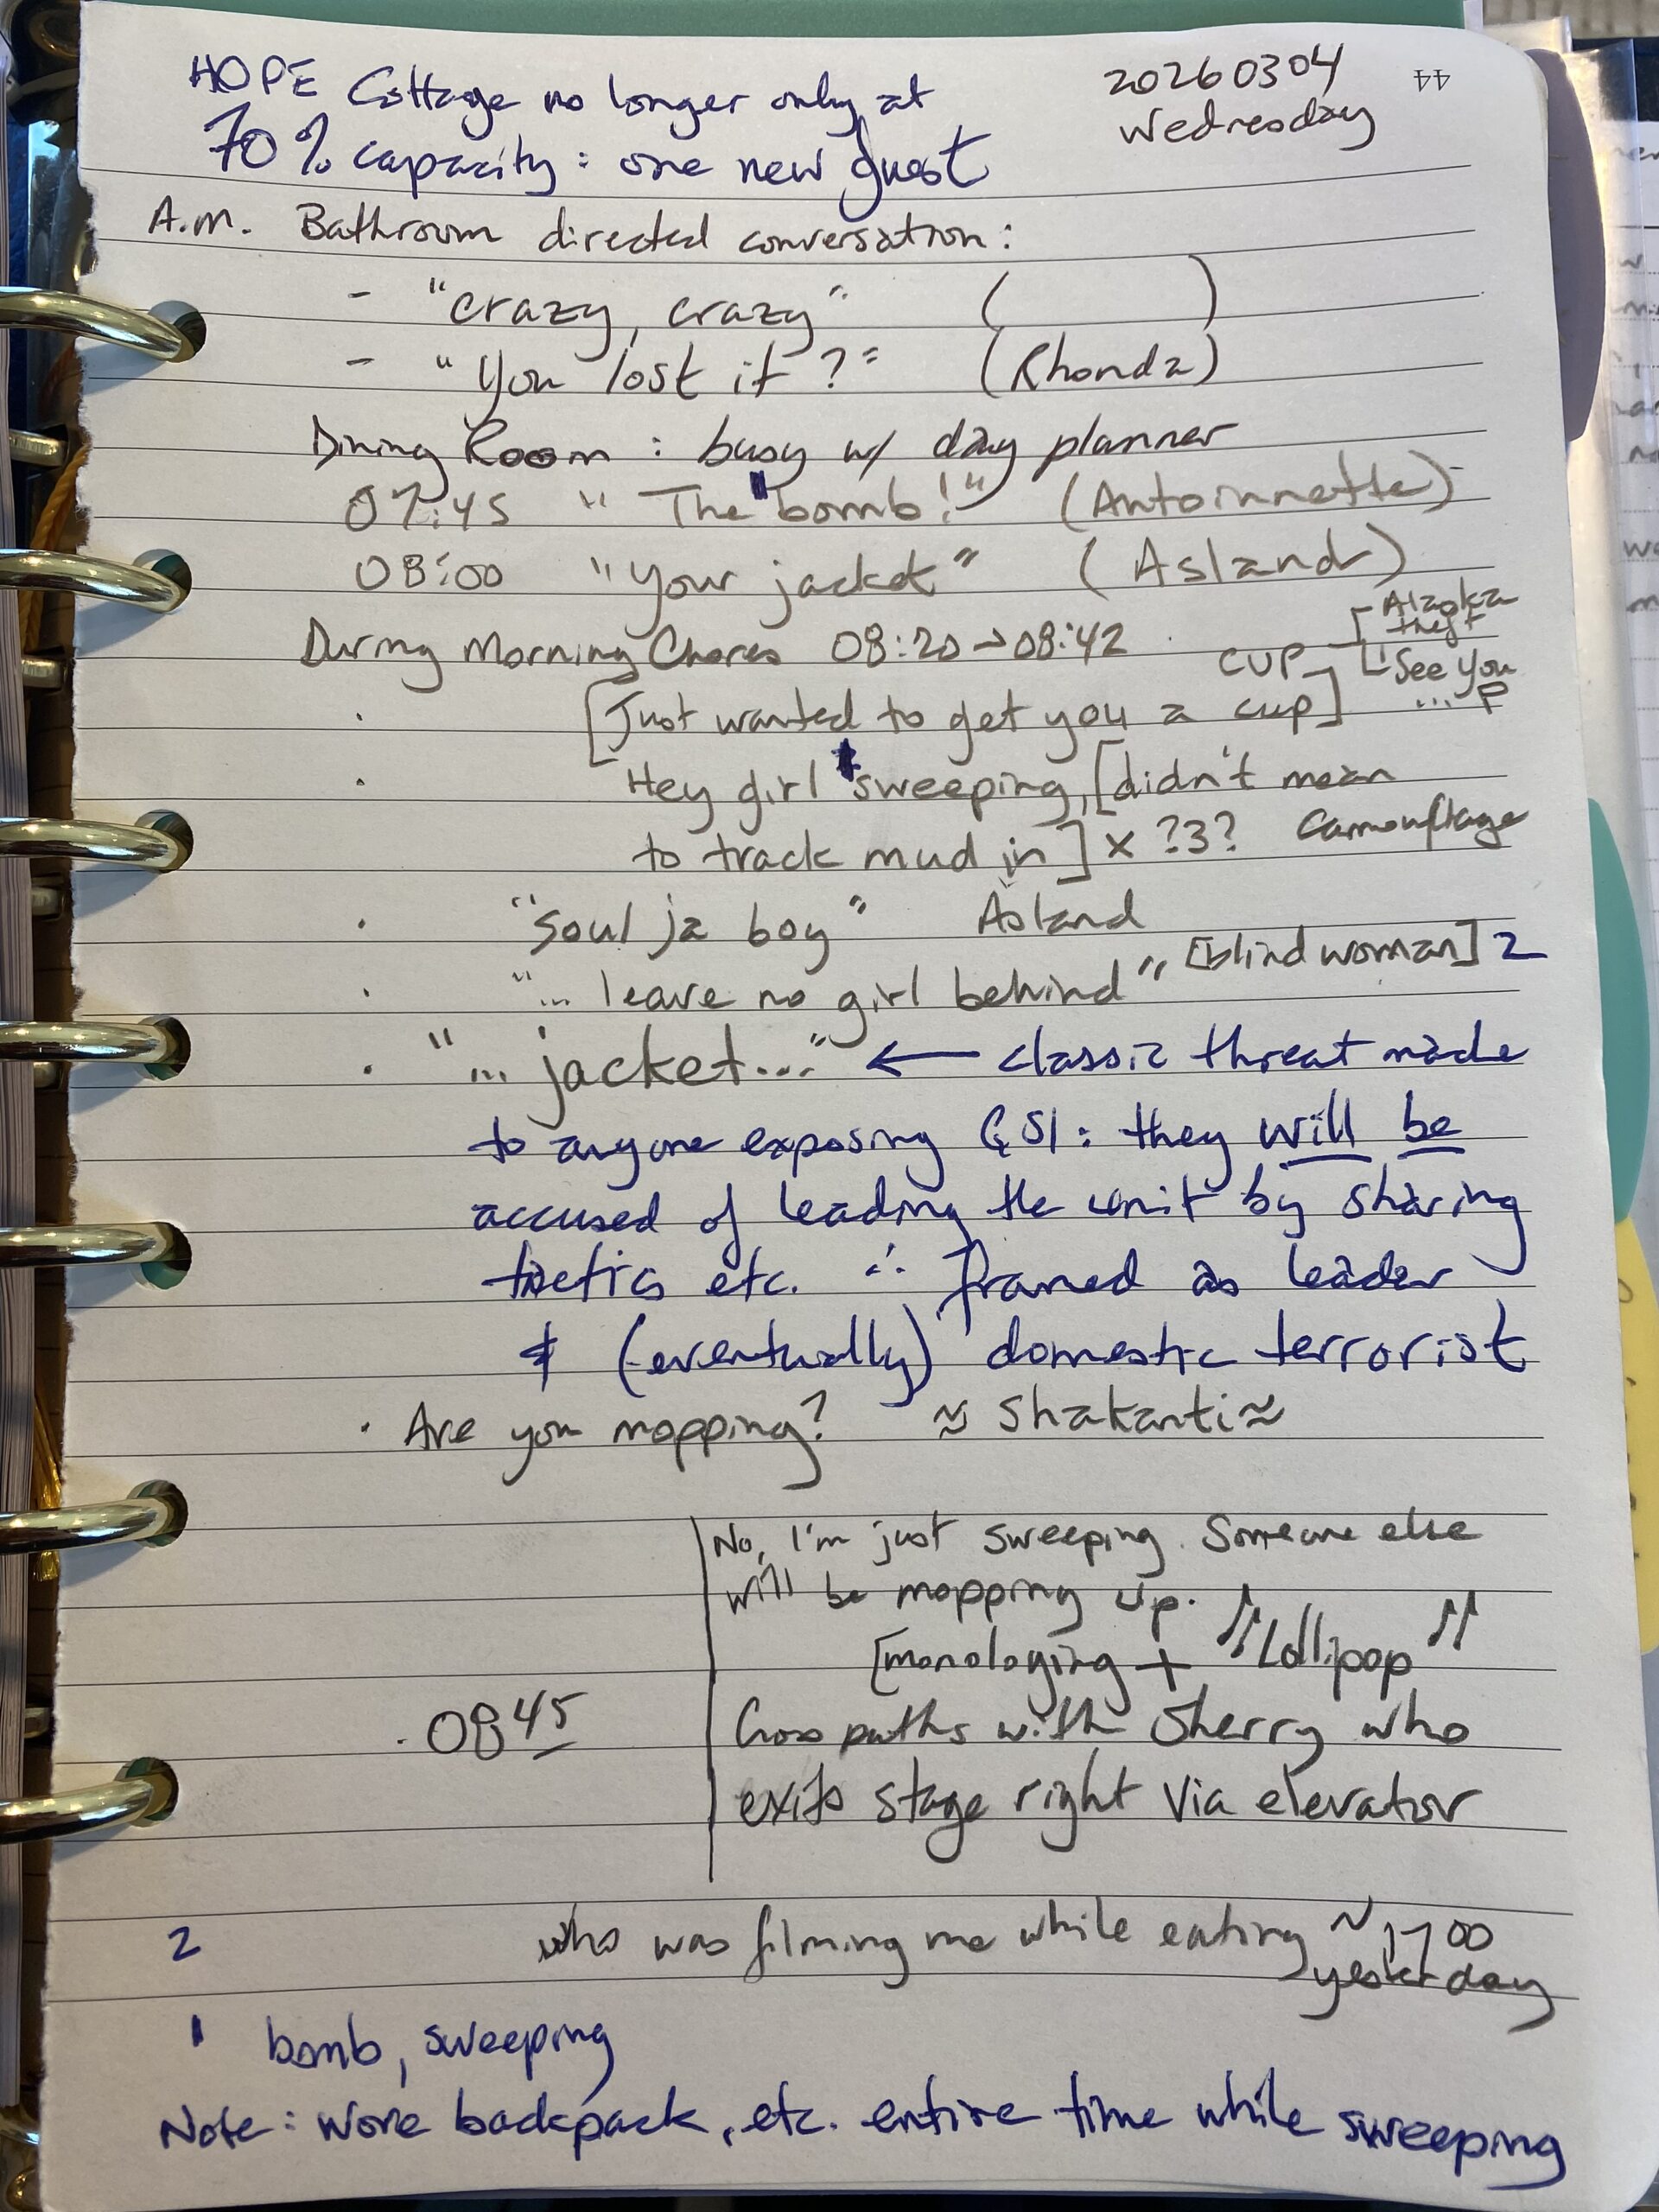 HOPE Cottage no longer only at
70% capacity: one new guest
20260304
Wednesday
44
A.m. Bathroom directed conversation:
- "crazy, crazy" ( )
- "You lost it?" (Rhonda)
Dining Room: busy w/ day planner
07:45 "The bomb!" (Antoinnette)
08:00 "your jacket" (Asland)
During Morning Chores 08:20→08:42
CUP
[Alaska
theft
See you
... P
[Just wanted to get you a cup]
Hey girl sweeping, [didn't mean
to track mud in] x ?3? Camouflage
"soul ja boy" Asland
"... leave no girl behind" [blind woman] 2
"... jacket..." ← classic threat made
to anyone exposing GSI: they will be
accused of leading the unit by sharing
tactics etc. ∴ framed as leader
& (eventually) domestic terrorist
· Are you mopping? ≈ Shakanti ≈
No, I'm just sweeping. Someone else
will be mopping up.
[monologing + ♫ Lollipop ♫
. 08 45
Cross paths with Sherry who
exits stage right via elevator
2 who was filming me while eating ~1700
yesterday
1 bomb, sweeping
Note: wore backpack, etc. entire time while sweeping